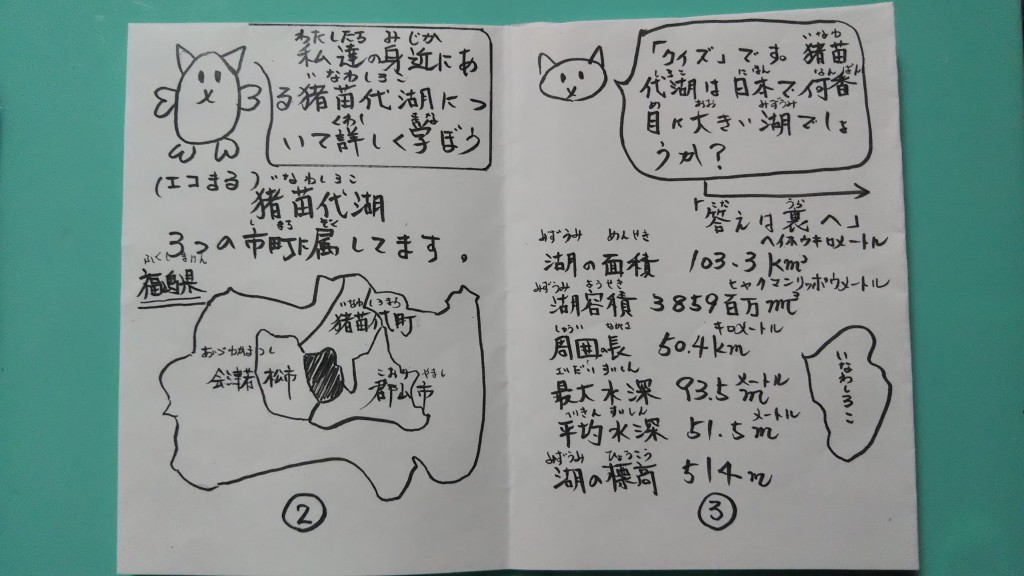 わたしたち みじか
私達の身近にあ
いなわしろこ
る猪苗代湖につ
くわし まな
いて詳しく学ぼう
(エコまる)
いなわしろこ
猪苗代湖
ぞく
3つの市町に属してます。
ふくしまけん
福島県
いなわしろまち
猪苗代町
会津若松市
こおりやまし
郡山市
②
いなわ
「クイズ」です。猪苗
しろこ にほん なんばん
代湖は日本で何番
め おお みずうみ
目に大きい湖でしょ
うか?
こた うら
「答えは裏へ」
みずうみ めんせき ヘイホウキロメートル
湖の面積 103.3km²
みずうみ ようせき ヒャクマンリッポウメートル
湖容積 3859百万m³
しゅうい なが キロメートル
周囲の長 50.4km
さいだい すいしん メートル
最大水深 93.5m
すいしん メートル
平均水深 51.5m
みずうみ ひょうこう
湖の標高 514m
いなわしろこ
③